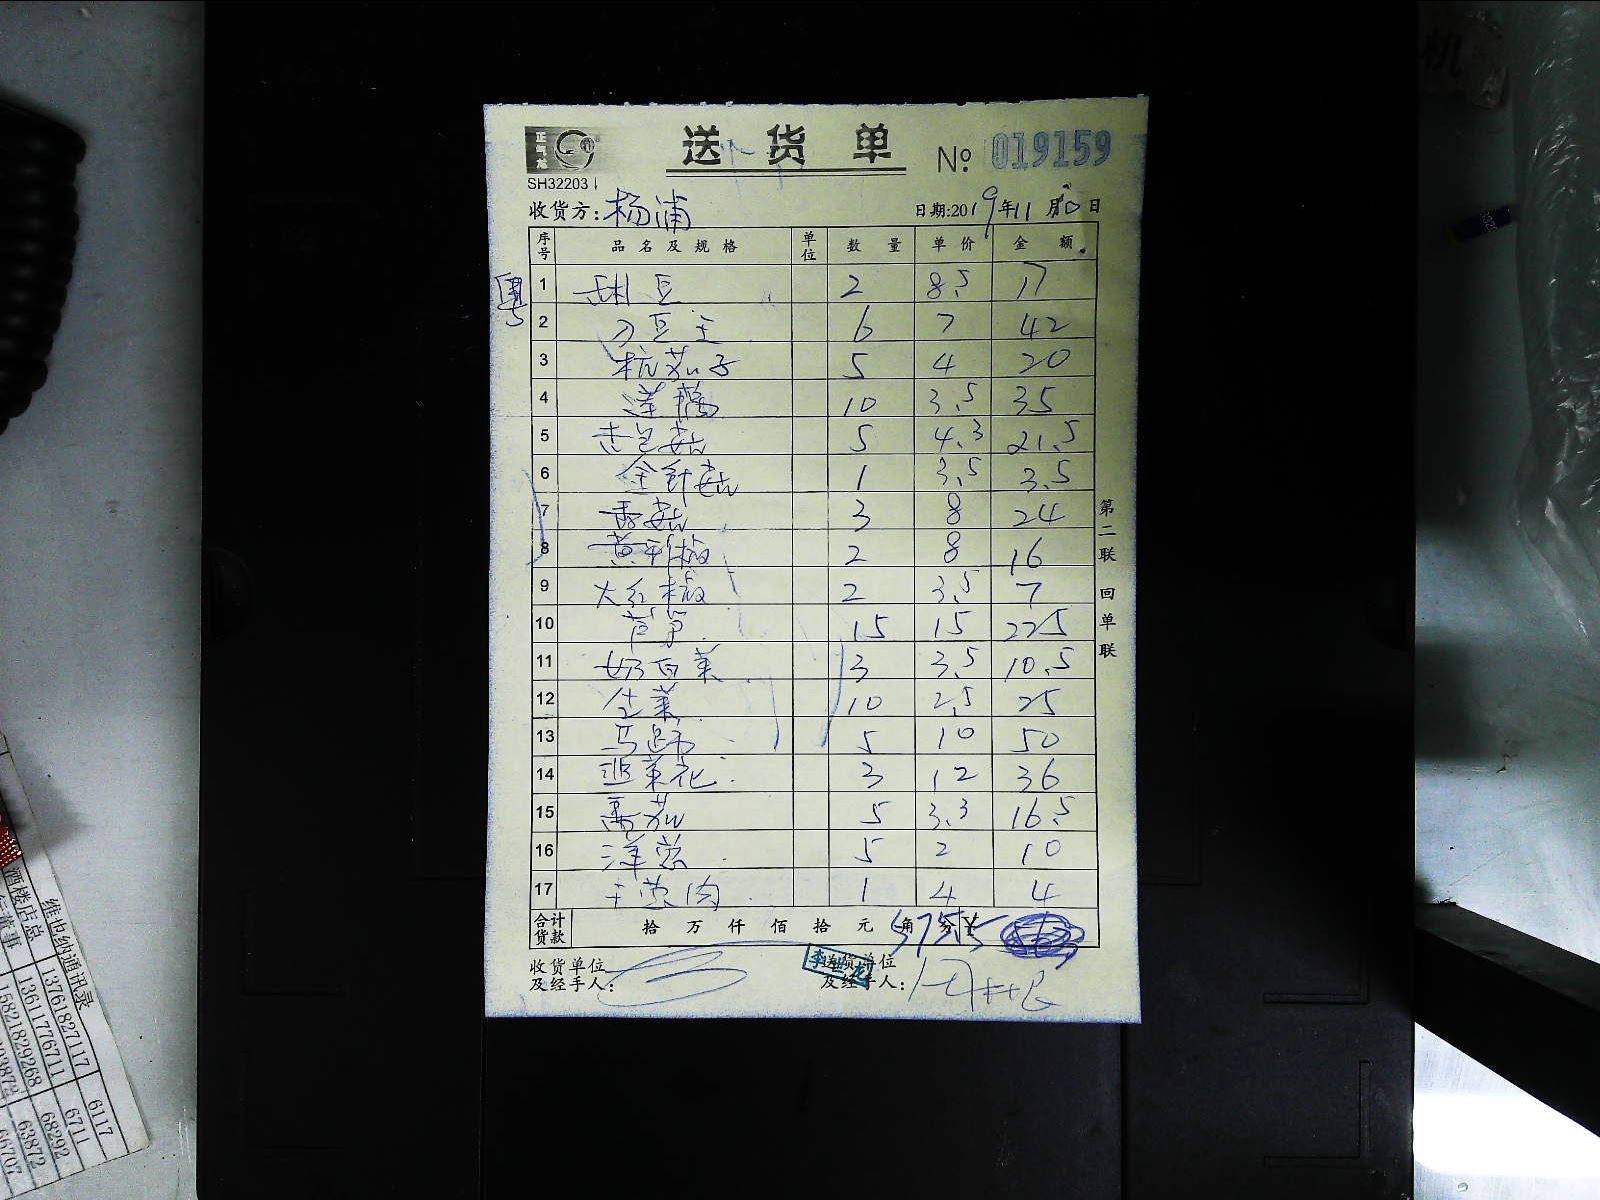 正气龙
送货单
№ 019159
SH32203
收货方: 杨浦
日期:2019年11月10日
序号 品名及规格 单位 数量 单价 金额
粤
1 豆 2 8.5 17
2 刀豆王 6 7 42
3 杭茄子 5 4 20
4 莲藕 10 3.5 35
5 5 4.3 21.5
6 金针菇 1 3.5 3.5
7 香菇 3 8 24
8 黄彩椒 2 8 16
9 大红椒 2 3.5 7
10 芦笋 15 15 225
11 奶白菜 3 3.5 10.5
12 生菜 10 2.5 25
13 马蹄 5 10 50
14 韭菜花 3 12 36
15 番茄 5 3.3 16.5
16 洋葱 5 2 10
17 干葱肉 1 4 4
合计货款 拾 万 仟 佰 拾 元 角 分 ¥
第二联 回单联
收货单位及经手人:
送货单位及经手人:
机
酒楼店总
维也纳通讯录
13761827117 6117
13611776711 6711
15821829268 68292
63872
66707